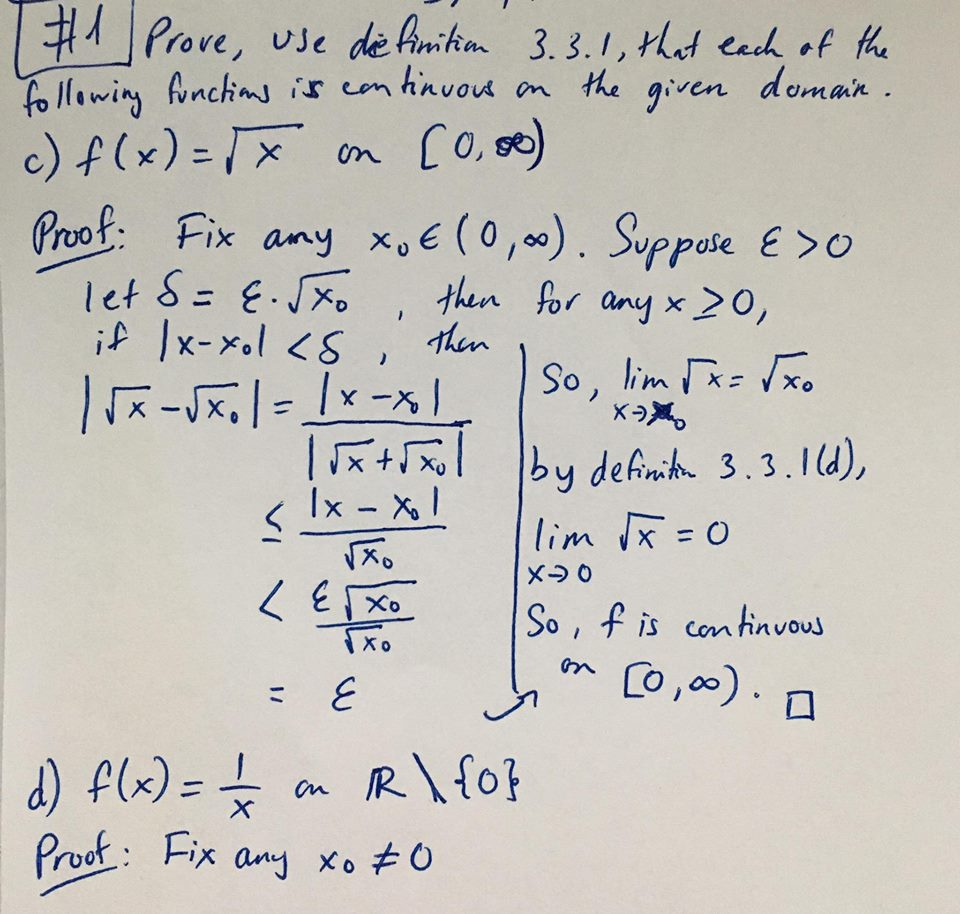 #1 Prove, use definition 3.3.1, that each of the
following functions is continuous on the given domain.
c) f(x) = √x on [0, ∞)
Proof: Fix any x₀ ∈ (0, ∞). Suppose ε > 0
let δ = ε·√x₀, then for any x ≥ 0,
if |x - x₀| < δ, then
|√x - √x₀| = |x - x₀| / |√x + √x₀|
≤ |x - x₀| / √x₀
< ε√x₀ / √x₀
= ε
So, lim √x = √x₀
x→x₀
by definition 3.3.1(d),
lim √x = 0
x→0
So, f is continuous
on [0, ∞). □
d) f(x) = 1/x on ℝ \ {0}
Proof: Fix any x₀ ≠ 0